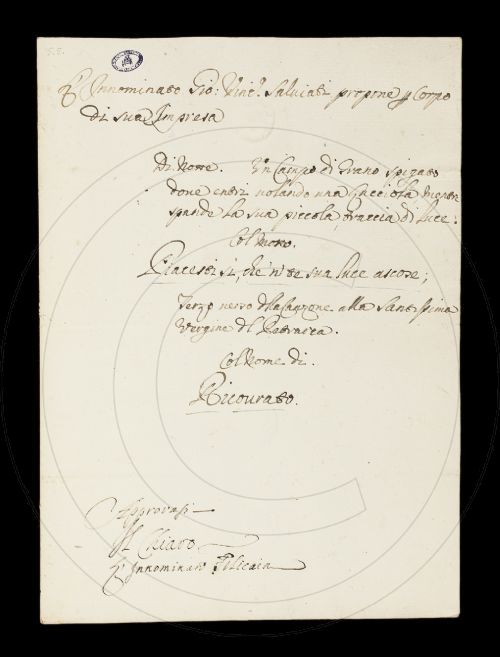 55.
L'Innominato Gio: Vinc.o Salviati propone p Corpo
di sua Impresa
Di Notte. Un Campo di Grano spigato
dove entri volando una Lucciola, mentre
spande la sua piccola traccia di luce.
Col Motto.
Piacesti sì, che 'n te sua luce ascose;
Terzo verso della Canzone alla Santissima
Vergine del Petrarca.
Col Nome di.
Ricourato.
Approvasi
Il Chiaro
L'Innominato Filicaia